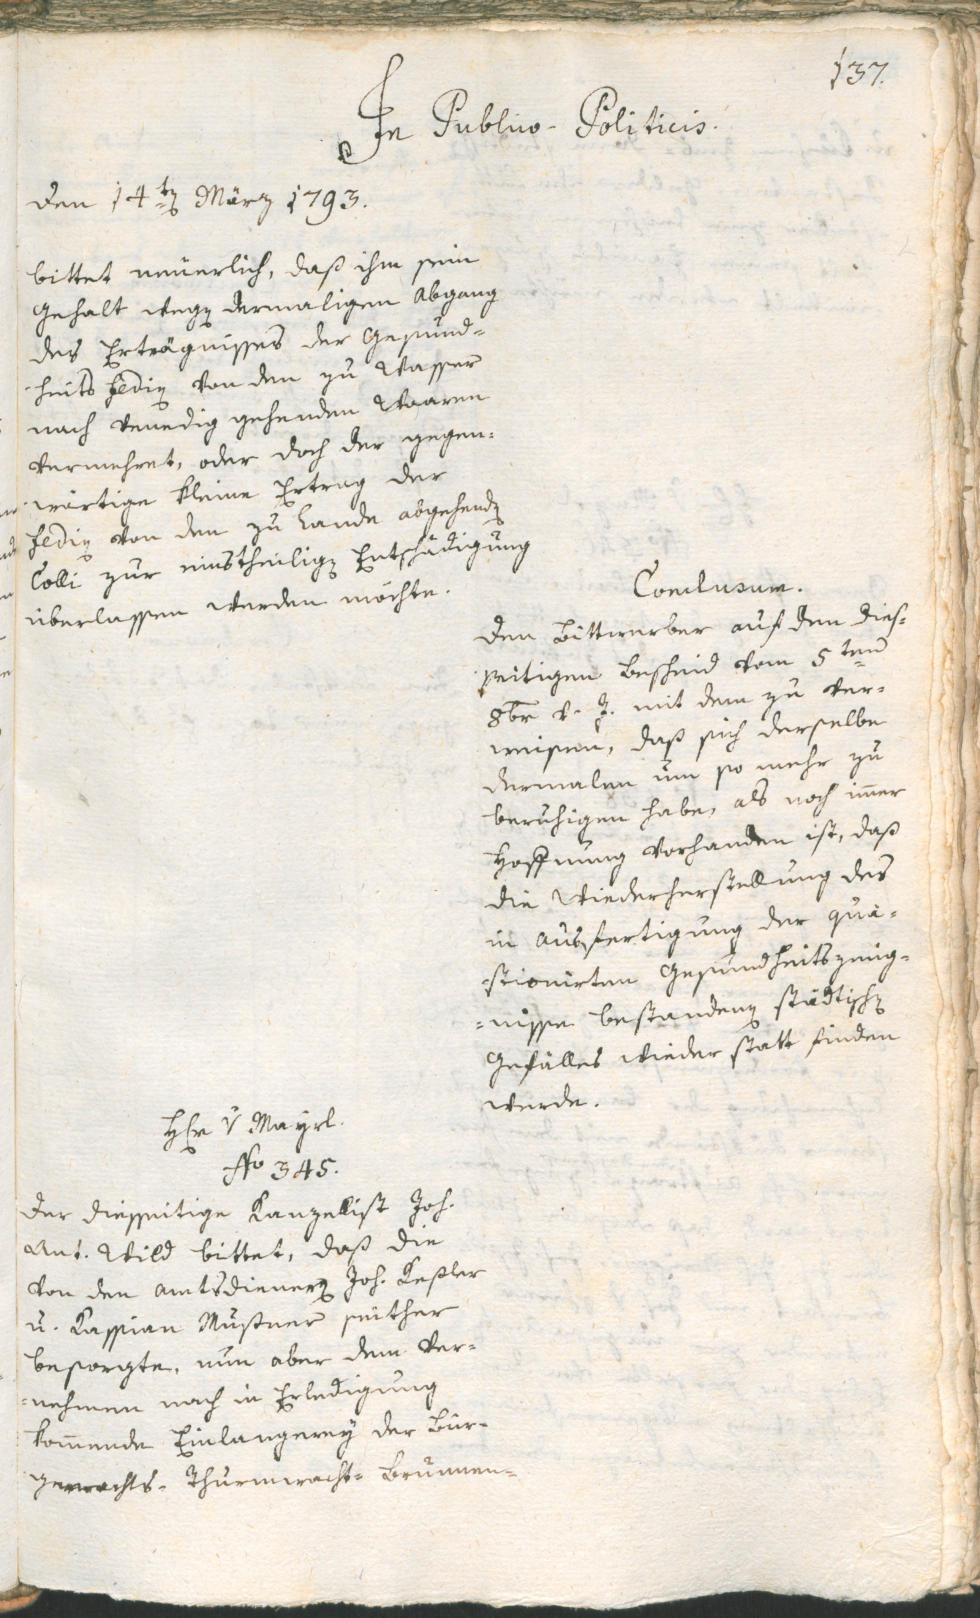 137.
In Publico-Politicis.
Den 14ten März 1793.
bittet neuerlich, daß ihm sein
Gehalt wegen dermaligem Abgang
des Erträgnisses der Gesund-
heits Fedin von den zu Wasser
nach Venedig gehenden Waaren
vermehret, oder doch der gegen-
wärtige kleine Ertrag der
Fedin von den zu Lande abgehenden
Colli zur einstheiligen Entschädigung
überlassen werden möchte.
Conclusum.
Den Bittwerber auf den dies-
seitigen Bescheid vom 5ten
8br v. J. mit dem zu ver-
weisen, daß sich derselbe
dermalen um so mehr zu
beruhigen habe, als noch imer
Hoffnung vorhanden ist, daß
die Wiederherstellung des
in Ausfertigung der quä-
stionirten Gesundheitszeug-
nisse bestandenen städtischen
Gefälles wieder statt finden
werde.
Hr v Mayrl.
No 345.
Der diesseitige Kanzellist Joh.
Ant. Wild bittet, daß die
von den Amtsdienern Joh. Keßler
u. Kassian Mußner seither
besorgte, nun aber dem Ver-
nehmen nach in Erledigung
komende Einlangerey der Bür-
gerwachts- Thurmwacht- Brunnen-